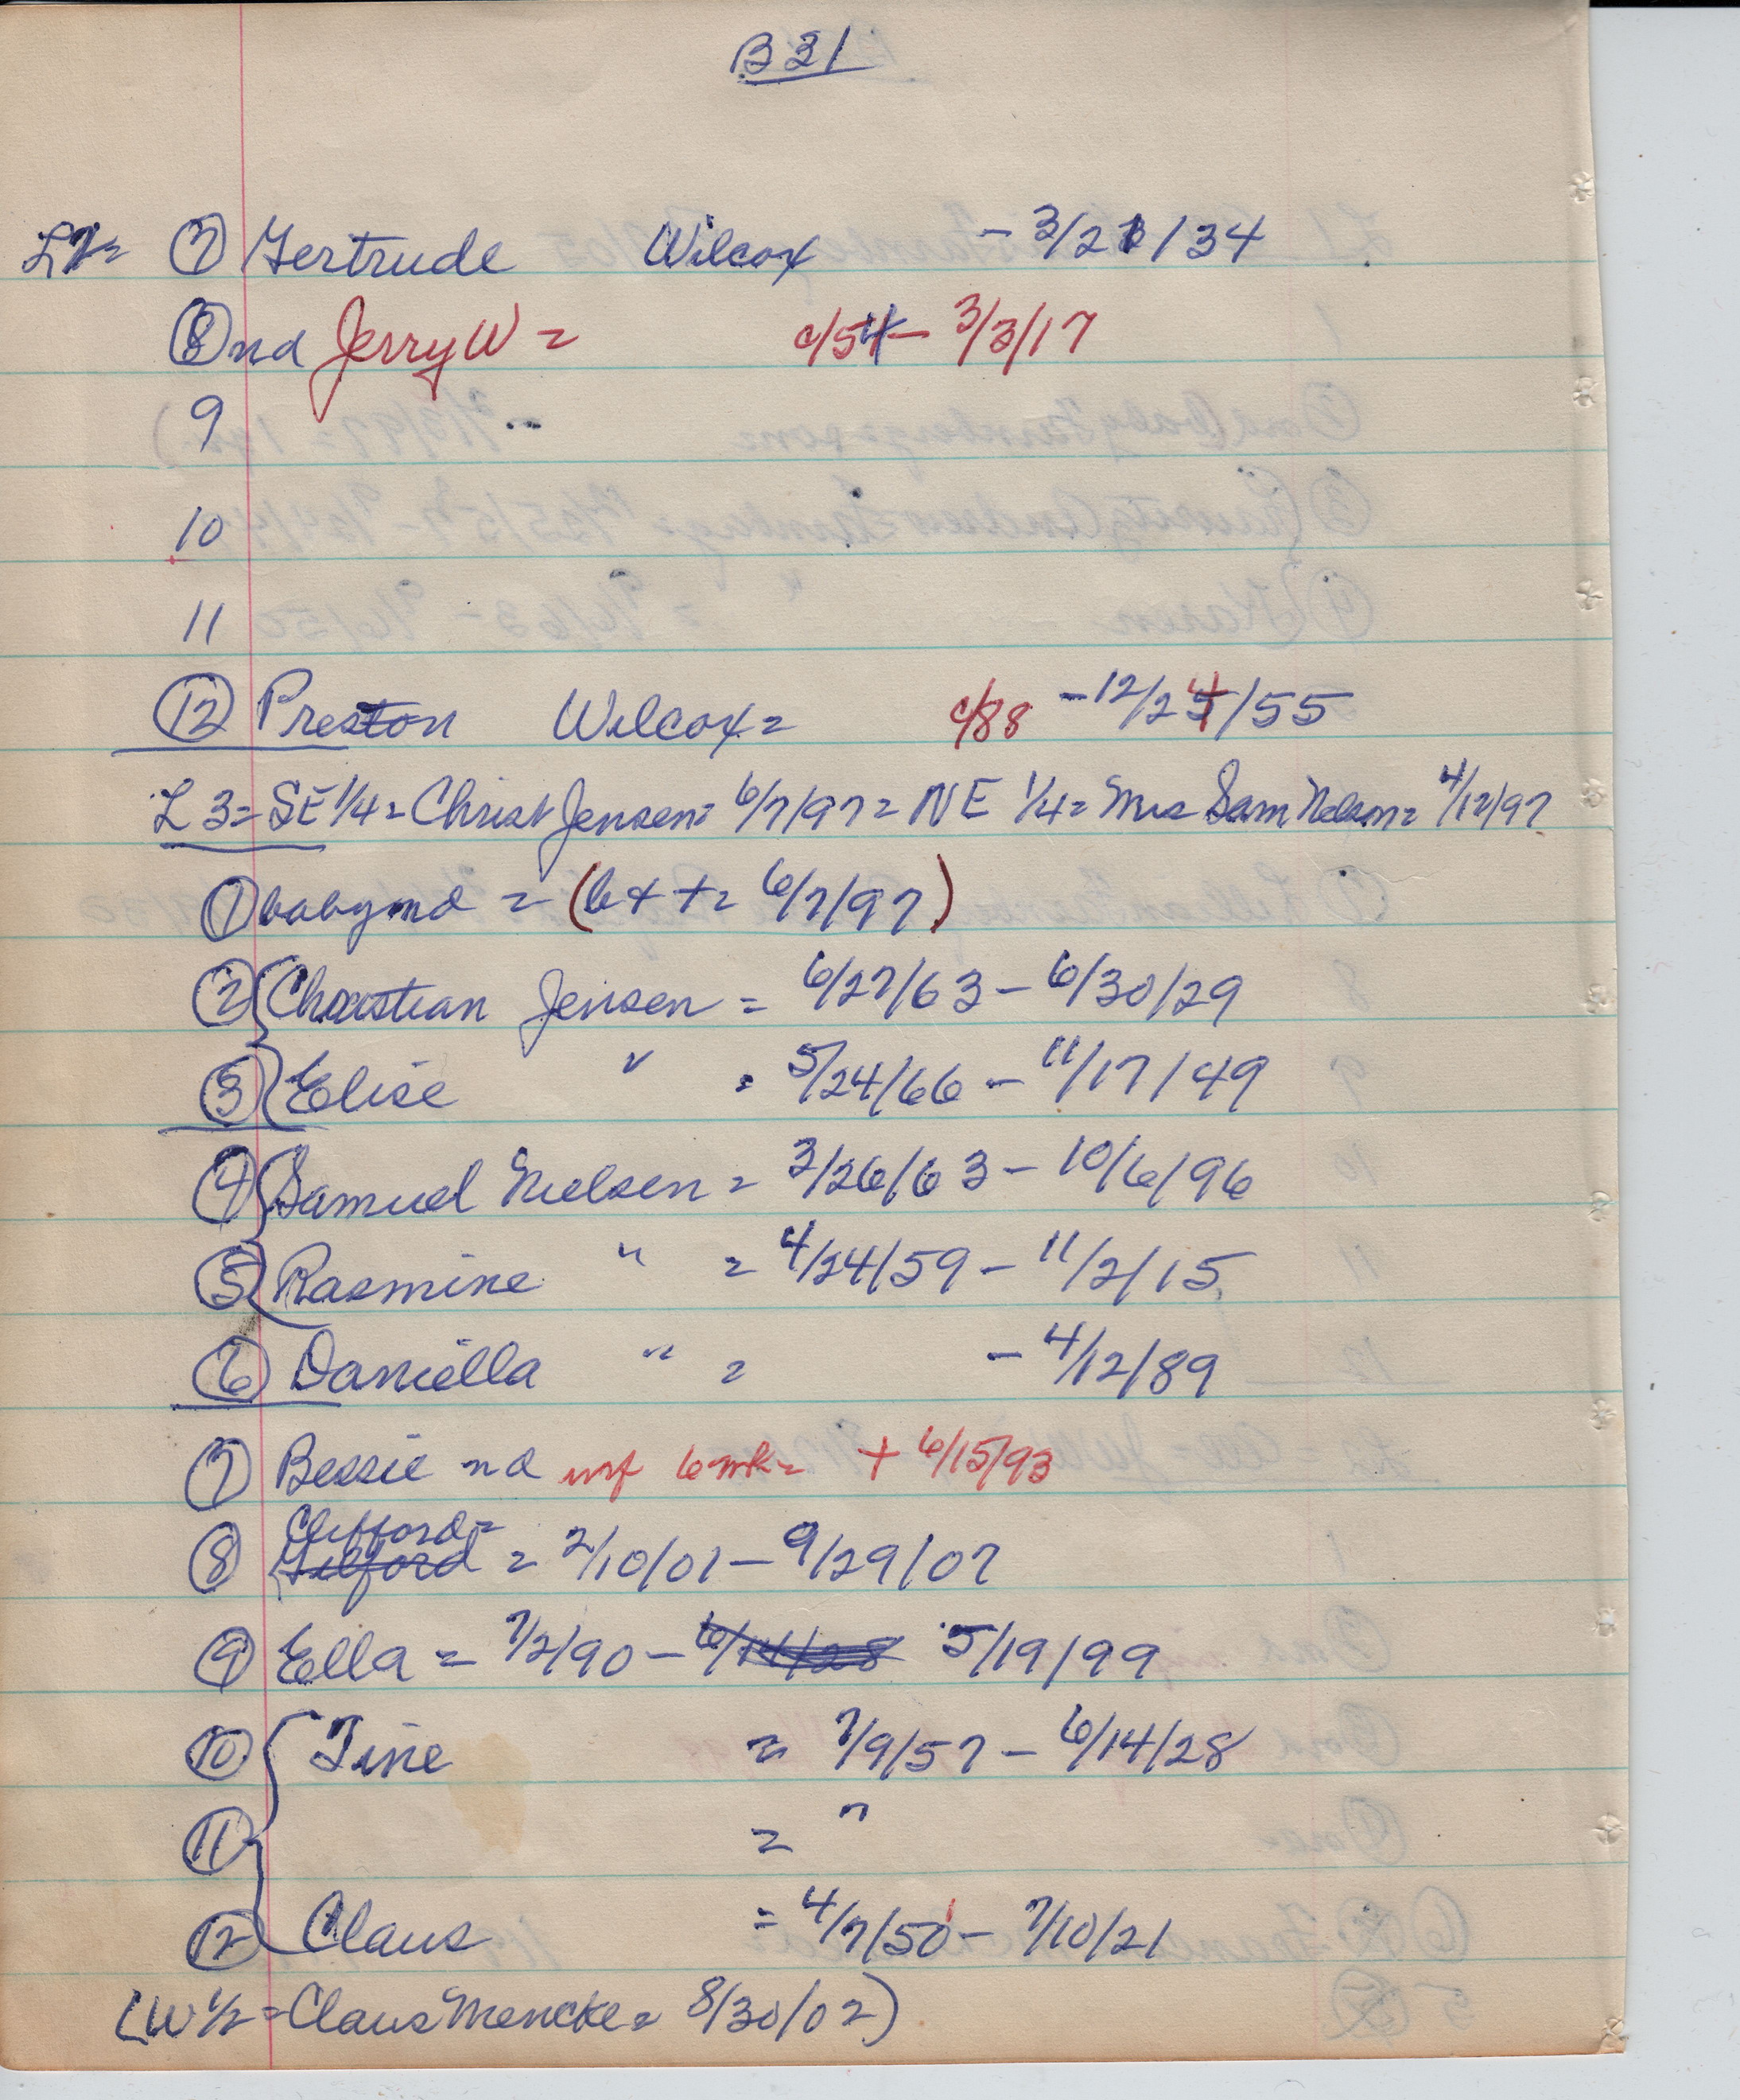 B31
L2= 7 Gertrude Wilcox - 3/21/34
8 nd Jerry W = c/54 - 3/3/17
9
10
11
12 Preston Wilcox = c/88 - 12/24/55
L 3 = SE 1/4 = Christ Jensen = 6/7/97 = NE 1/4 = Mrs Sam Nelson = 4/12/97
1 baby nd = (b + += 6/7/97)
2 Christian Jensen = 6/27/63 - 6/30/29
3 Elise " = 5/24/66 - 11/17/49
4 Samuel Nielsen = 3/26/63 - 10/6/96
5 Rasmine " = 4/24/59 - 11/2/15
6 Daniella " = - 4/12/89
7 Bessie nd inf 6 wk = + 6/15/93
Clifford =
8 Gilford = 2/10/01 - 9/29/07
9 Ella = 7/2/90 - 6/14/28 5/19/99
10 Tine = 7/9/57 - 6/14/28
11 = "
12 Claus = 4/7/50 - 7/10/21
(W 1/2 = Claus Mencke = 8/30/02)